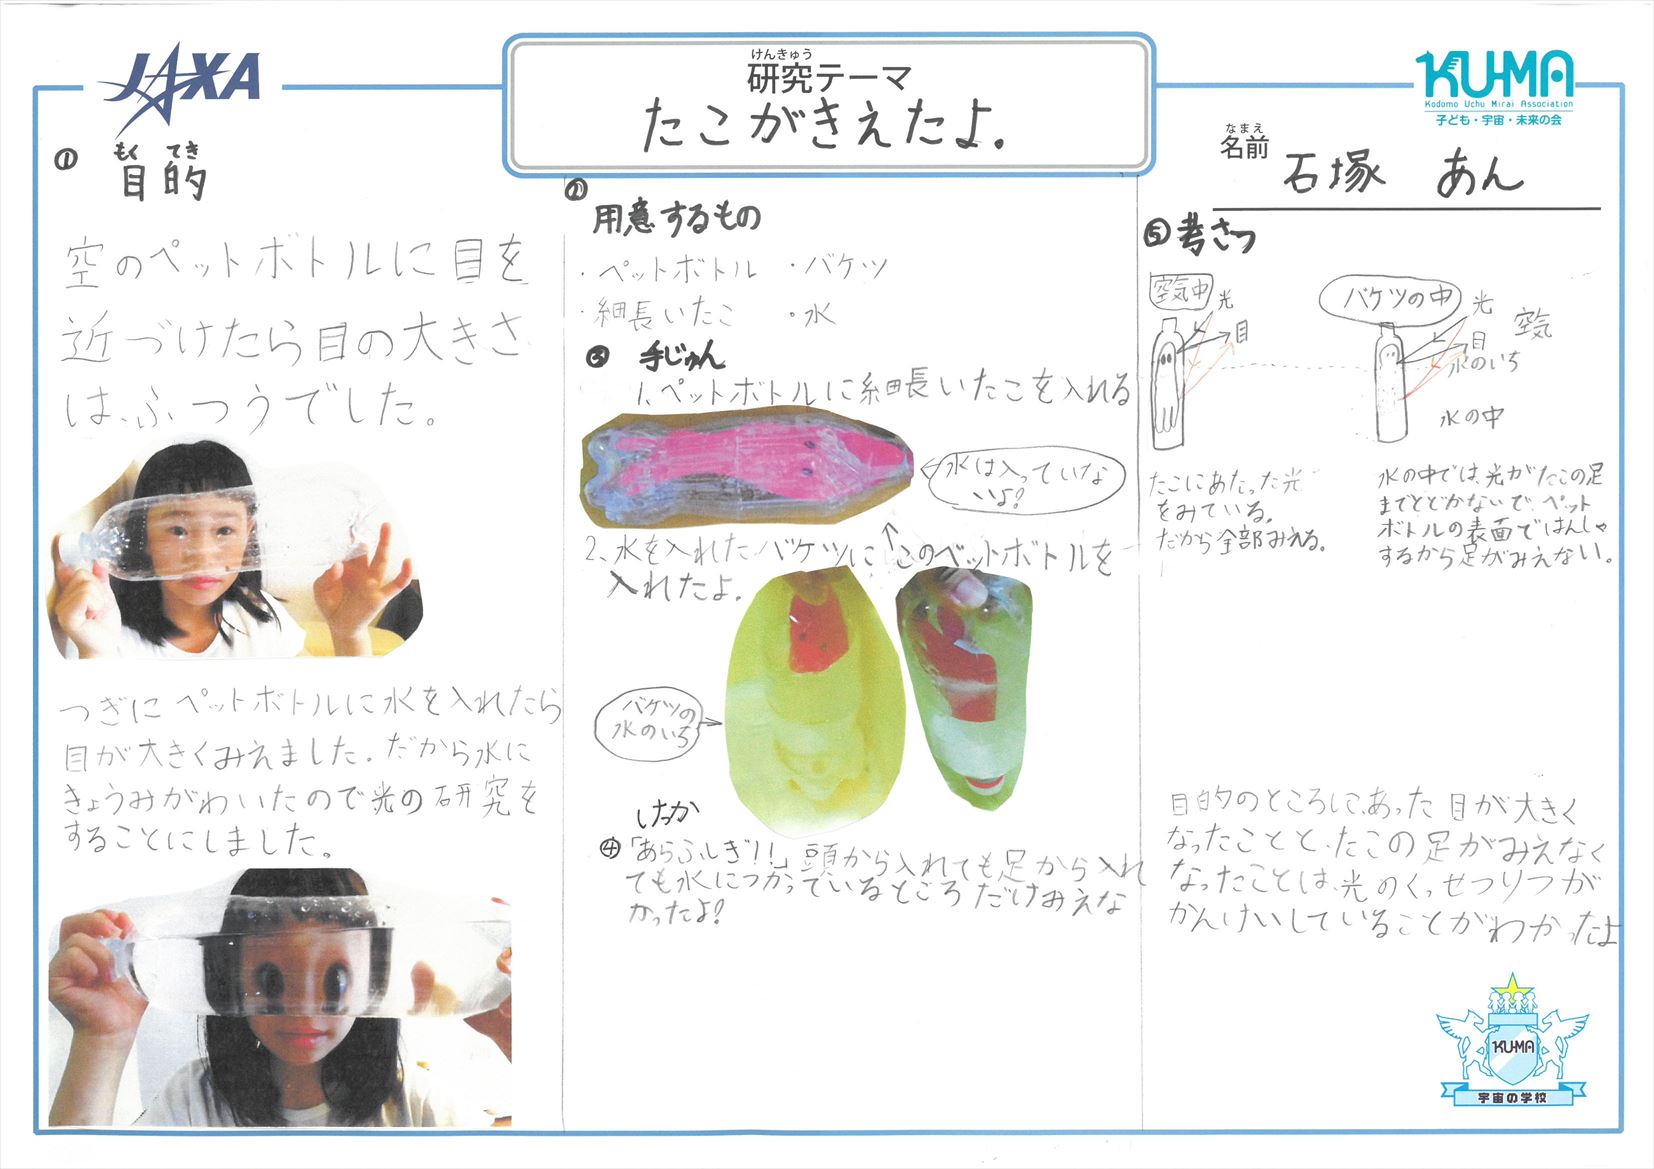 JAXA
けんきゅう
研究テーマ
たこがきえたよ.
KU-MA
Kodomo Uchu Mirai Association
子ども・宇宙・未来の会
なまえ
名前
石塚 あん
① もく てき
目的
空のペットボトルに目を
近づけたら目の大きさ
は、ふつうでした。
つぎにペットボトルに水を入れたら
目が大きくみえました.だから水に
きょうみがわいたので光の研究を
することにしました。
②
用意するもの
・ペットボトル ・バケツ
・細長いたこ ・水
③ 手じゅん
1.ペットボトルに細長いたこを入れる
水は入っていな
いよ?
2、水を入れたバケツにこのペットボトルを
入れたよ.
バケツの
水のいち
けっか
④「あらふしぎ!!」頭から入れても足から入れ
ても水につかっているところだけみえな
かったよ?
⑤考さつ
空気中
光
目
バケツの中
光
空気
目
水のいち
水の中
たこにあたった光
をみている.
だから全部みえる.
水の中では、光がたこの足
までとどかないで、ペット
ボトルの表面ではんしゃ
するから足がみえない.
目的のところにあった目が大きく
なったことと、たこの足がみえなく
なったことは、光のくっせつりつが
かんけいしていることがわかったよ
KU-MA
宇宙の学校